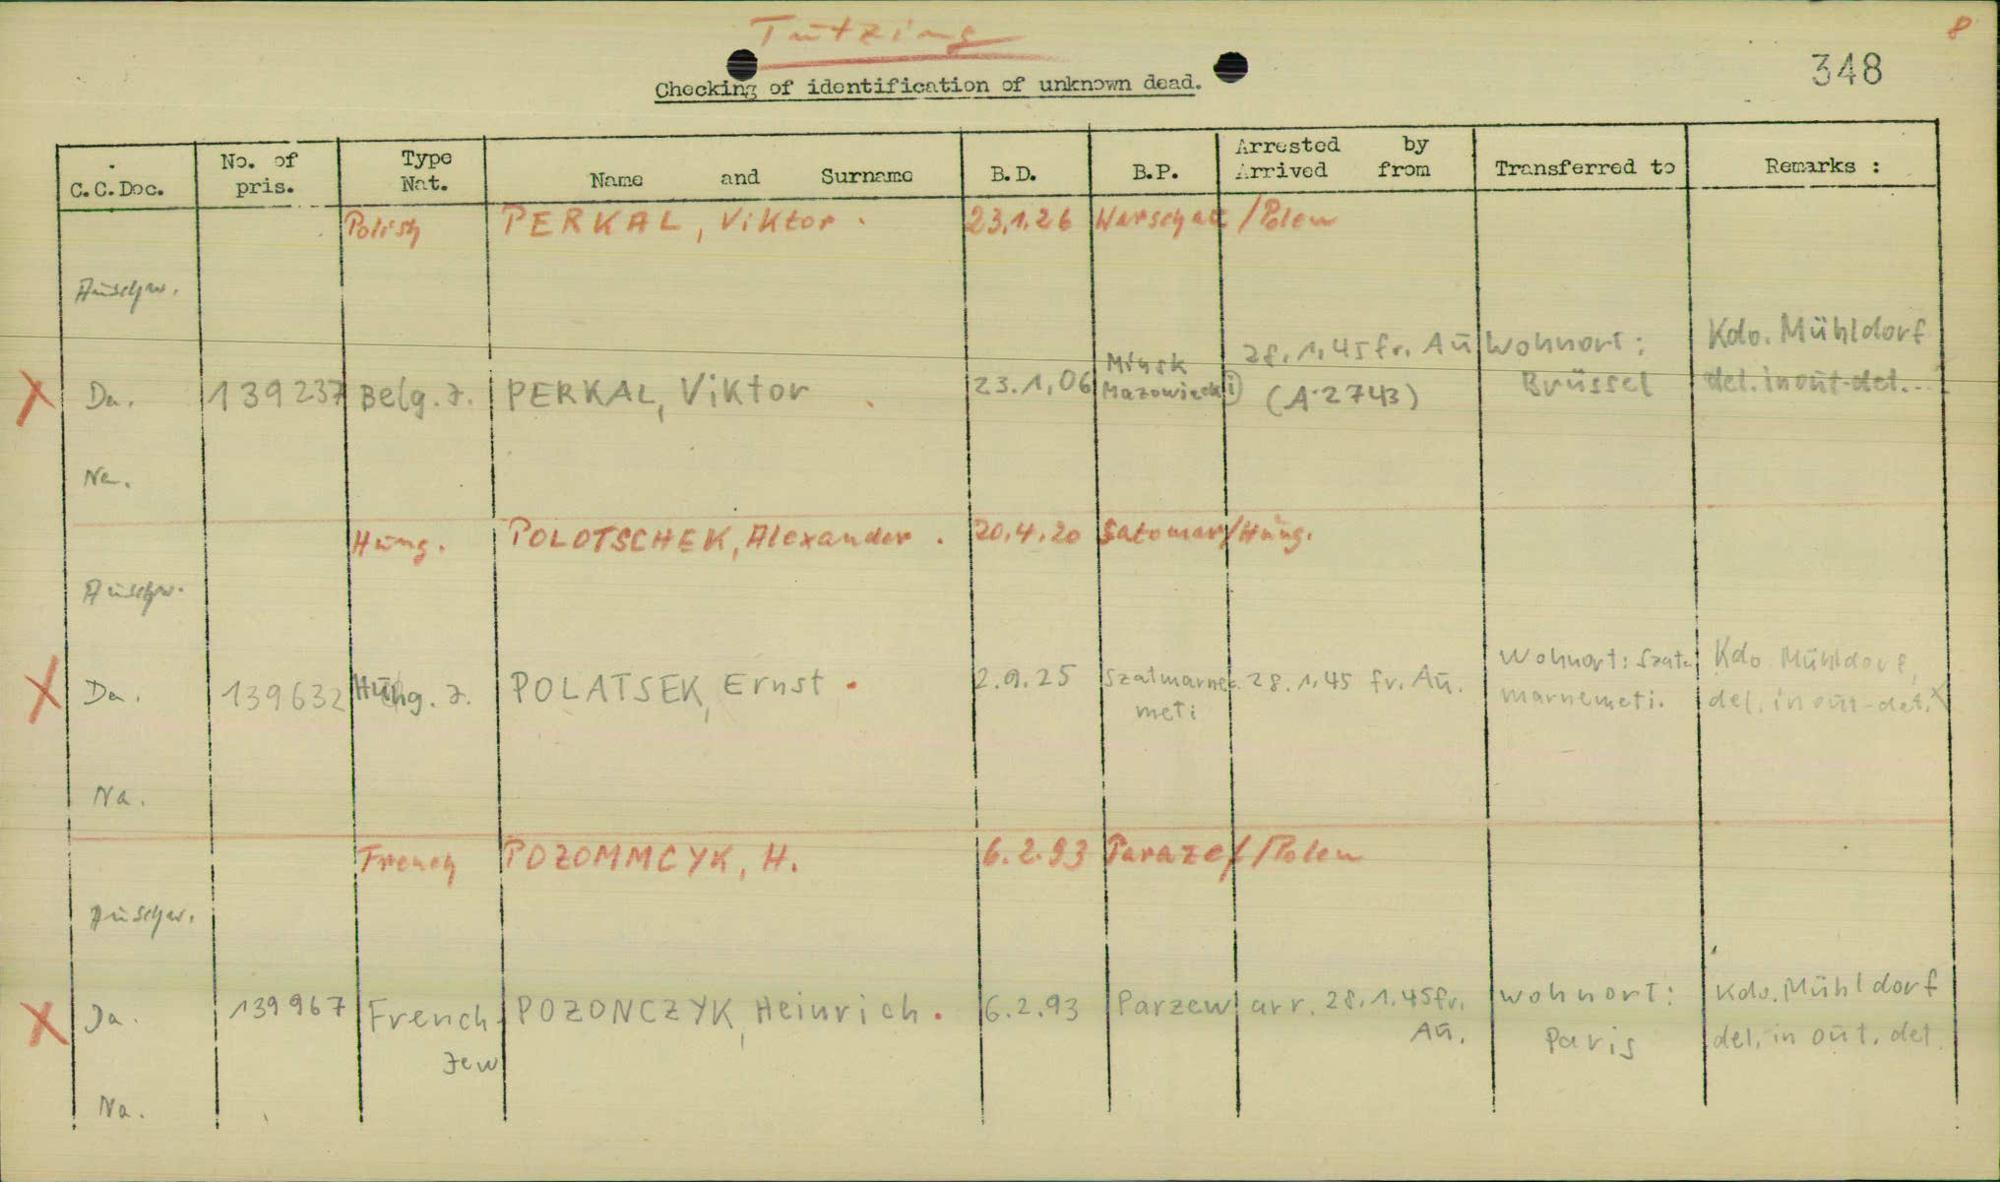 Tutzing
8
348
Checking of identification of unknown dead.
C.C.Doc.
No. of pris.
Type Nat.
Name and Surname
B.D.
B.P.
Arrested by
Arrived from
Transferred to
Remarks :
Polish PERKAL, Viktor . 23.1.26 Warschau /Polen
Auschw.
X Da. 139237 Belg. J. PERKAL, Viktor . 23.1.06 Minsk Mazowiecki 28.1.45 fr. Au (A-2743) Wohnort: Brüssel Kdo. Mühldorf del. in out-det.
Na.
Hung. POLOTSCHEK, Alexander . 20.4.20 Satomar/Hung.
Auschw.
X Da. 139632 Hung. J. POLATSEK, Ernst . 2.9.25 Szatmarne- meti 28.1.45 fr. Au. Wohnort: Szat- marnemeti. Kdo Mühldorf, del. in out-det. X
Na.
French POZOMMCYK, H. 6.2.93 Parazef/Polen
Auschw.
X Da. 139967 French Jew POZONCZYK, Heinrich . 6.2.93 Parzew arr. 28.1.45 fr. Au. Wohnort: Paris Kdo. Mühldorf del. in out. det
Na.